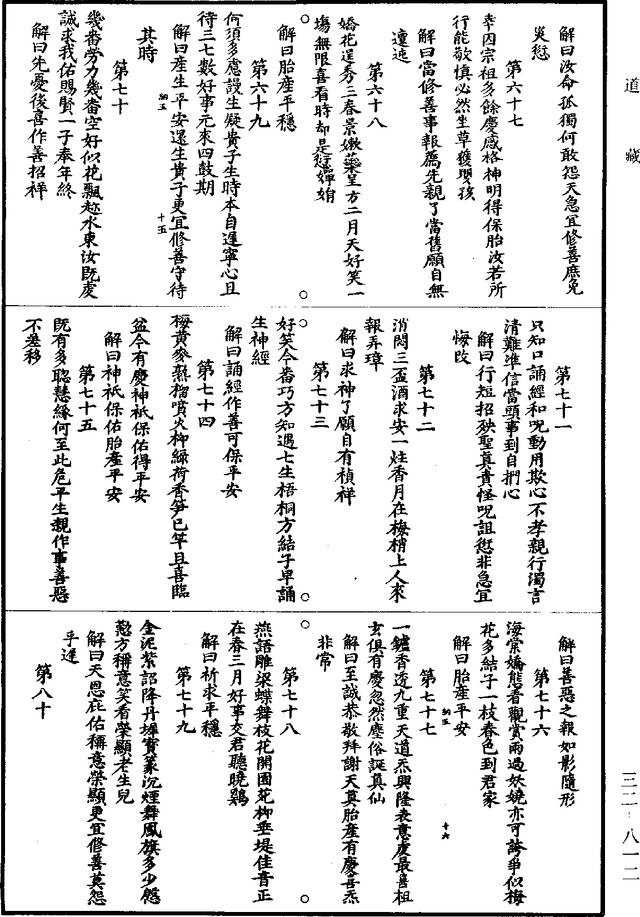 道藏
解曰汝命孤獨何敢怨天急宜修善庶免
災愆
第六十七
幸因宗祖多餘慶感格神明得保胎汝若所
行能敬慎必然坐草獲嬰孩
解曰當修善事報薦先親了當舊願自無
遭迍
第六十八
嬌花逞秀三春景嫩蘂呈方二月天好笑一
塲無限喜看時却是愆嬋娟
解曰胎產平穩
第六十九
何須多慮謾生疑貴子生時本自遲寧心且
待三七數好事元來四鼓期
解曰產生平安還生貴子更宜修善守待
其時
第七十
幾番勞力幾番空好似花飄越水東汝既處
誠求我佑賜賢一子奉年終
解曰先憂後喜作善招祥
第七十一
只知口誦經和呪動用欺心不孝親行濁言
清難準信當頭事到自捫心
解曰行短招殃聖真責怪呪詛愆非急宜
悔改
第七十二
消悶三盃酒求安一炷香月在梅梢上人來
報弄璋
解曰求神了願自有禎祥
第七十三
好笑今番巧方知遇七生梧桐方結子早誦
生神經
解曰誦經作善可保平安
第七十四
梅黃麥熟榴噴火柳綠荷香笋已竿且喜臨
盆今有慶神祇保佑得平安
解曰神祇保佑胎產平安
第七十五
既有多聰慧緣何至此危平生親作事善惡
不差移
解曰善惡之報如影隨形
第七十六
海棠嬌態看觀賞雨過妖嬈亦可誇爭似梅
花多結子一枝春色到君家
解曰胎產平安
第七十七
一鑪香透九重天道炁興隆表意虔最喜祖
玄俱有慶忽然塵俗誕真仙
解曰至誠恭敬拜謝天真胎產有慶喜炁
非常
第七十八
燕語雕梁蝶舞枝花開園苑柳垂堤佳音正
在春三月好事交君聽曉鷄
解曰祈求平穩
第七十九
金泥紫詔降丹墀寶篆沉煙舞鳳旗多少慇
懃方稱意笑看榮顯老生兒
解曰天恩庇佑稱意榮顯更宜修善莫怨
乎遲
第八十
三二-八一二